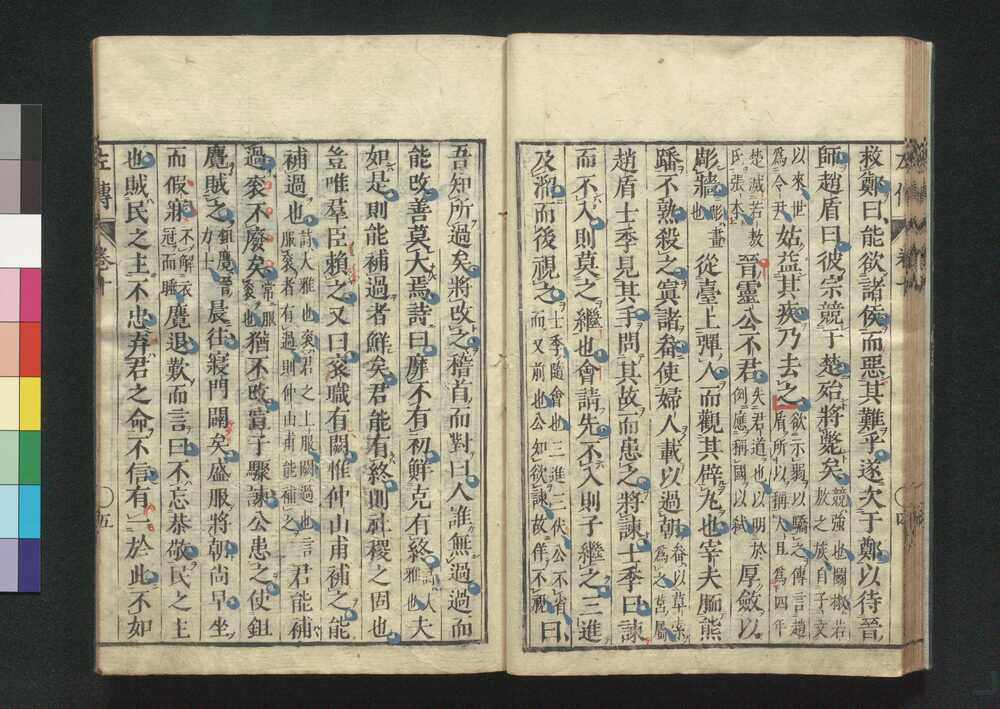 救鄭曰能欲諸侯而惡其難乎遂次于鄭以待晉
師趙盾曰彼宗競于楚殆將斃矣競強也鬭椒若敖之族自子文
以來世為令尹姑益其疾乃去之欲示弱以驕之傳言趙盾所以稱人且為四年
楚滅若敖氏張本晉靈公不君失君道也以明於例應稱國以弒厚斂以
彫牆彫畫也從臺上彈人而觀其辟丸也宰夫胹熊
蹯不熟殺之寘諸畚使婦人載以過朝畚以草索為之筥屬
趙盾士季見其手問其故而患之將諫士季曰諫
而不入則莫之繼也會請先不入則子繼之三進
及溜而後視之士季隨會也三進三伏公不省而又前也公知欲諫故佯不視曰
吾知所過矣將改之稽首而對曰人誰無過過而
能改善莫大焉詩曰靡不有初鮮克有終詩大雅也夫
如是則能補過者鮮矣君能有終則社稷之固也
豈唯羣臣賴之又曰袞職有闕惟仲山甫補之能
補過也詩大雅也袞君之上服闕過也言服袞者有過則仲山甫能補之君能補
過袞不廢矣常服袞也猶不改宣子驟諫公患之使鉏
麑賊之鉏麑晉力士晨往寢門闢矣盛服將朝尚早坐
而假寐不解衣冠而睡麑退歎而言曰不忘恭敬民之主
也賊民之主不忠弃君之命不信有一於此不如
左傳 卷十 〇五